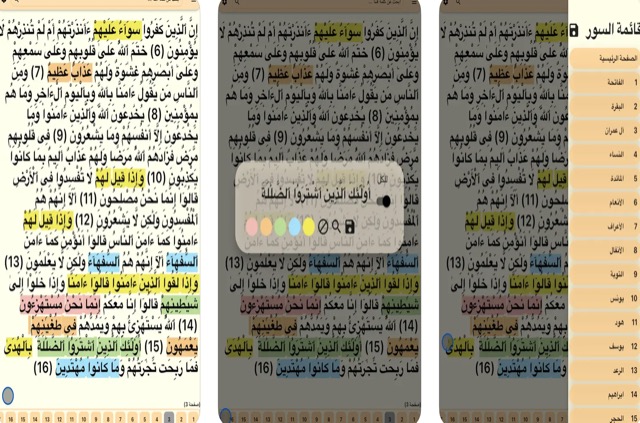 إن الذين كفروا سواء عليهم ءأنذرتهم أم لم تنذرهم لا
يؤمنون (6) ختم الله على قلوبهم وعلى سمعهم
وعلى أبصرهم غشوة ولهم عذاب عظيم (7) ومن
الناس من يقول ءامنا بالله وباليوم الءاخر وما هم
بمؤمنين (8) يخدعون الله والذين ءامنوا وما
يخدعون إلا أنفسهم وما يشعرون (9) في قلوبهم
مرض فزادهم الله مرضا ولهم عذاب أليم بما كانوا
يكذبون (10) وإذا قيل لهم لا تفسدوا في الأرض
قالوا إنما نحن مصلحون (11) ألا إنهم هم
المفسدون ولكن لا يشعرون (12) وإذا قيل لهم
ءامنوا كما ءامن الناس قالوا أنؤمن كما ءامن
السفهاء ألا إنهم هم السفهاء ولكن لا يعلمون (13)
وإذا لقوا الذين ءامنوا قالوا ءامنا وإذا خلوا إلى
شيطينهم قالوا إنا معكم إنما نحن مستهزءون
(14) الله يستهزئ بهم ويمدهم في طغينهم
يعمهون (15) أولئك الذين اشتروا الضللة بالهدى
فما ربحت تجرتهم وما كانوا مهتدين (16)
(صفحة 3)
أولئك الذين اشتروا الضللة
قائمة السور
الصفحة الرئيسية
1 الفاتحة
2 البقرة
3 آل عمران
4 النساء
5 المائدة
6 الأنعام
7 الأعراف
8 الأنفال
9 التوبة
10 يونس
11 هود
12 يوسف
13 الرعد
14 ابراهيم
15 الحجر